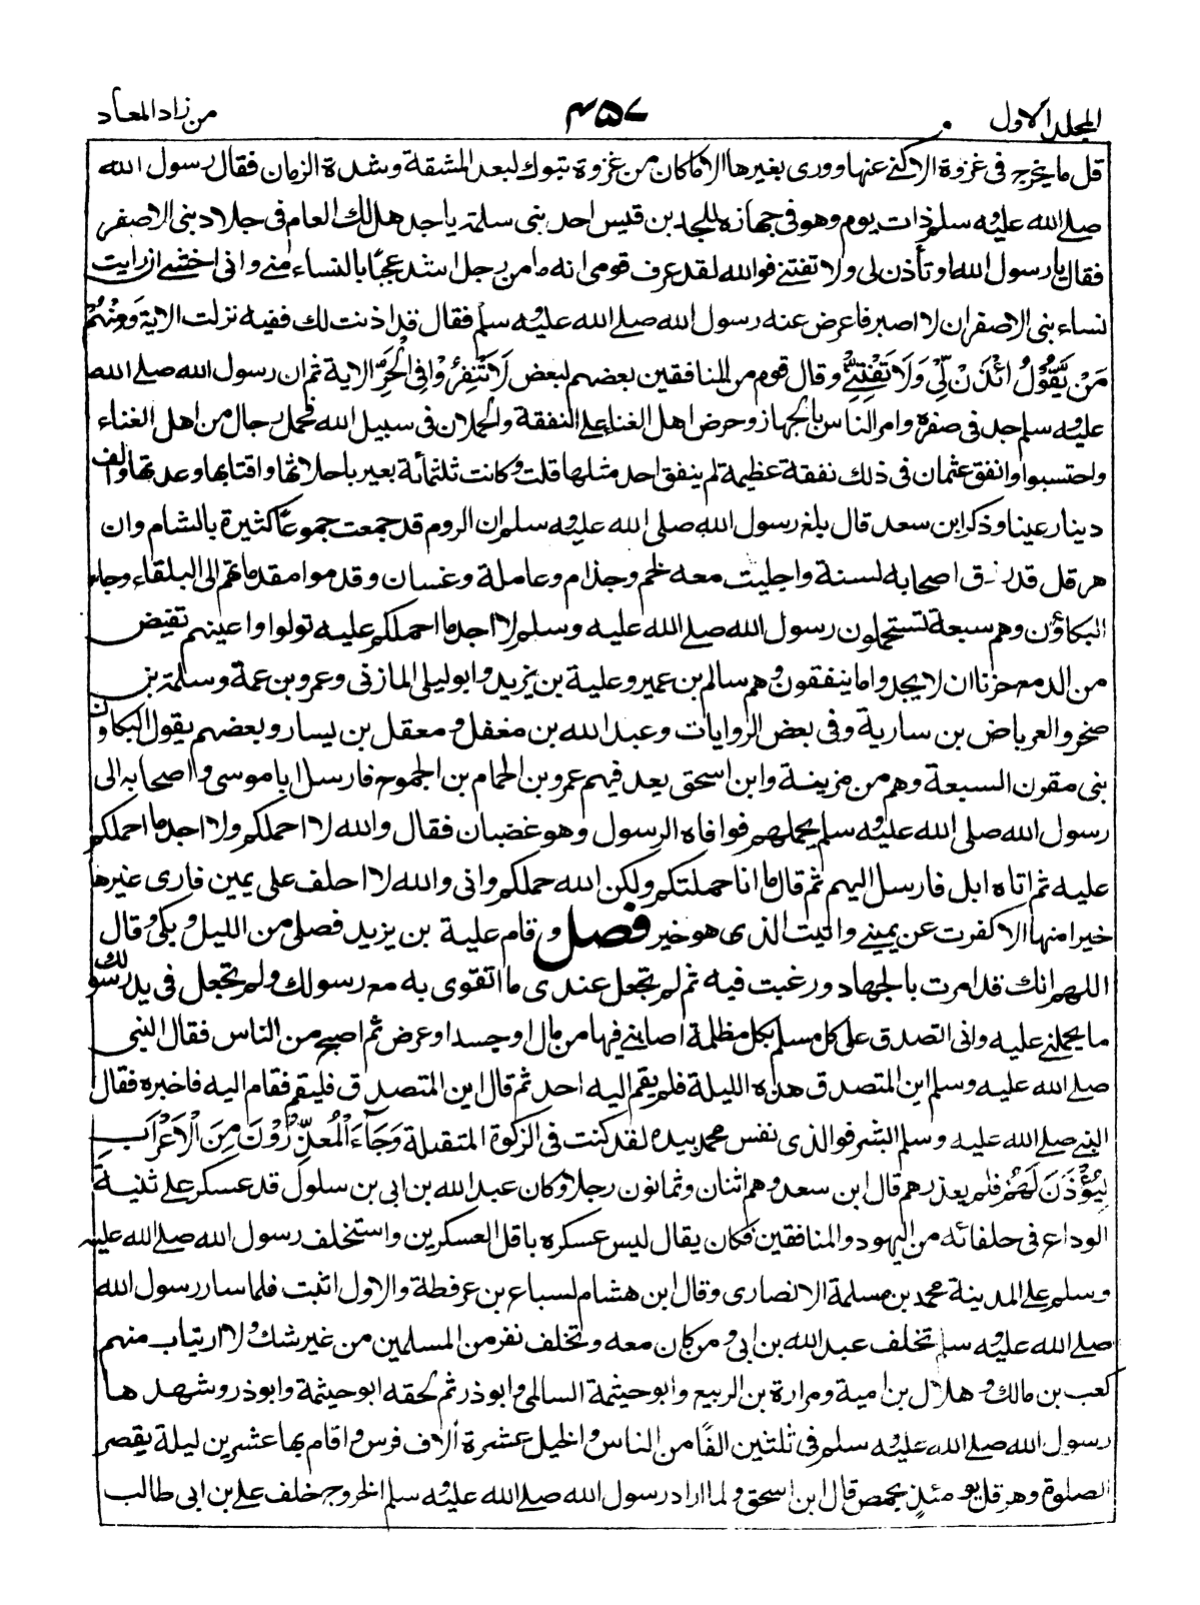 المجلد الاول
۴۵۷
من زاد المعاد
قل ما يخرج فى غزوة الا كنى عنها وورى بغيرها الا ما كان من غزوة تبوك لبعد المشقة وشدة الزمان فقال رسول الله
صلے الله عليه سلم ذات يوم وهو فى جهازه للجد بن قيس احد بنى سلمة يا جد هل لك العام فى جلاد بنى الاصفر
فقال يا رسول الله او تأذن لى ولا تفتنے فوالله لقد عرف قومى انه ما من رجل اشد عجبًا بالنساء منے وانى اخشے ان رايت
نساء بنى الاصفر ان لا اصبر فاعرض عنه رسول الله صلے الله عليه سلم فقال قد اذنت لك ففيه نزلت الاية وَمِنْهُمْ
مَنْ يَّقُوْلُ ائْذَنْ لِّىْ وَلَا تَفْتِنِّےْ وقال قوم من المنافقين بعضهم لبعض لَا تَنْفِرُوْا فِى الْحَرِّ الاية ثم ان رسول الله صلے الله
عليه سلم جد فى سفره وامر الناس بالجهاز وحرض اهل الغناء على النفقة والحملان فى سبيل الله فحمل رجال من اهل الغناء
واحتسبوا وانفق عثمان فى ذلك نفقة عظيمة لم ينفق احد مثلها قلت وكانت ثلثمائة بعير باحلاثها واقتابها وعدتها والف
دينار عينا وذكر ابن سعد قال بلغ رسول الله صلى الله عليه سلم ان الروم قد جمعت جموعًا كثيرة بالشام وان
هرقل قد رزق اصحابه لسنة واجليت معه لخم وجذام وعاملة وغسان وقدموا مقدماتهم الى البلقاء وجاء
البكاؤن وهم سبعة تستحملون رسول الله صلے الله عليه وسلم لا اجد ما احملكم عليه تولوا واعينهم تفيض
من الدمع حزنا ان لا يجدوا ما ينفقون وهم سالم بن عمير وعلية بن يزيد وابو ليلى المازنى وعمرو بن عمة وسلمة بن
صخر والعرباض بن سارية وفى بعض الروايات وعبد الله بن مغفل ومعقل بن يسار وبعضهم يقول البكاون
بنى مقرن السبعة وهم من مزينة وابن اسحق يعد فيهم عمرو بن الحمام بن الجموح فارسل ابا موسى واصحابه الى
رسول الله صلى الله عليه سلم يحملهم فوافاه الرسول وهو غضبان فقال والله لا احملكم ولا اجد ما احملكم
عليه ثم اتاه ابل فارسل اليهم ثم قال ما انا حملتكم ولكن الله حملكم وانى والله لا احلف على يمين فارى غيرها
خيرا منها الا كفرت عن يمينے واتيت الذى هو خير فصل وقام علية بن يزيد فصلى من الليل وبكى وقال
اللهم انك قد امرت بالجهاد ورغبت فيه ثم لم تجعل عندى ما اتقوى به مع رسولك ولم تجعل فى يد رسولك
ما يحملنے عليه وانى اتصدق على كل مسلم بكل مظلمة اصابنے فيها من مال او جسد او عرض ثم اصبح من الناس فقال النبى
صلے الله عليه وسلم اين المتصدق هذه الليلة فلم يقم اليه احد ثم قال اين المتصدق فليقم فقام اليه فاخبره فقال
النبے صلے الله عليه وسلم ابشر فوالذى نفس محمد بيده لقد كنت فى الزكوة المتقبلة وَجَآءَ الْمُعَذِّرُوْنَ مِنَ الْاَعْرَابِ
لِيُؤْذَنَ لَهُمْ فلم يعذرهم قال ابن سعد وهم اثنان وثمانون رجلا وكان عبد الله بن ابى بن سلول قد عسكر على ثنية
الوداع فى حلفائه من اليهود والمنافقين فكان يقال ليس عسكره باقل العسكرين واستخلف رسول الله صلے الله عليه
وسلم على المدينة محمد بن مسلمة الانصارى وقال ابن هشام لسباع بن عرفطة والاول اثبت فلما سار رسول الله
صلے الله عليه سلم تخلف عبد الله بن ابى ومن كان معه وتخلف نفر من المسلمين من غير شك ولا ارتياب منهم
كعب بن مالك وهلال بن امية ومرارة بن الربيع وابو حيثمة السالمى وابو ذر ثم لحقه ابو حيثمة وابو ذر وشهدها
رسول الله صلے الله عليه سلم فى ثلثين الفًا من الناس والخيل عشرة آلاف فرس واقام بها عشرين ليلة يقصر
الصلوة وهرقل يومئذٍ بحمص قال ابن اسحق ولما اراد رسول الله صلے الله عليه سلم الخروج خلف على بن ابى طالب